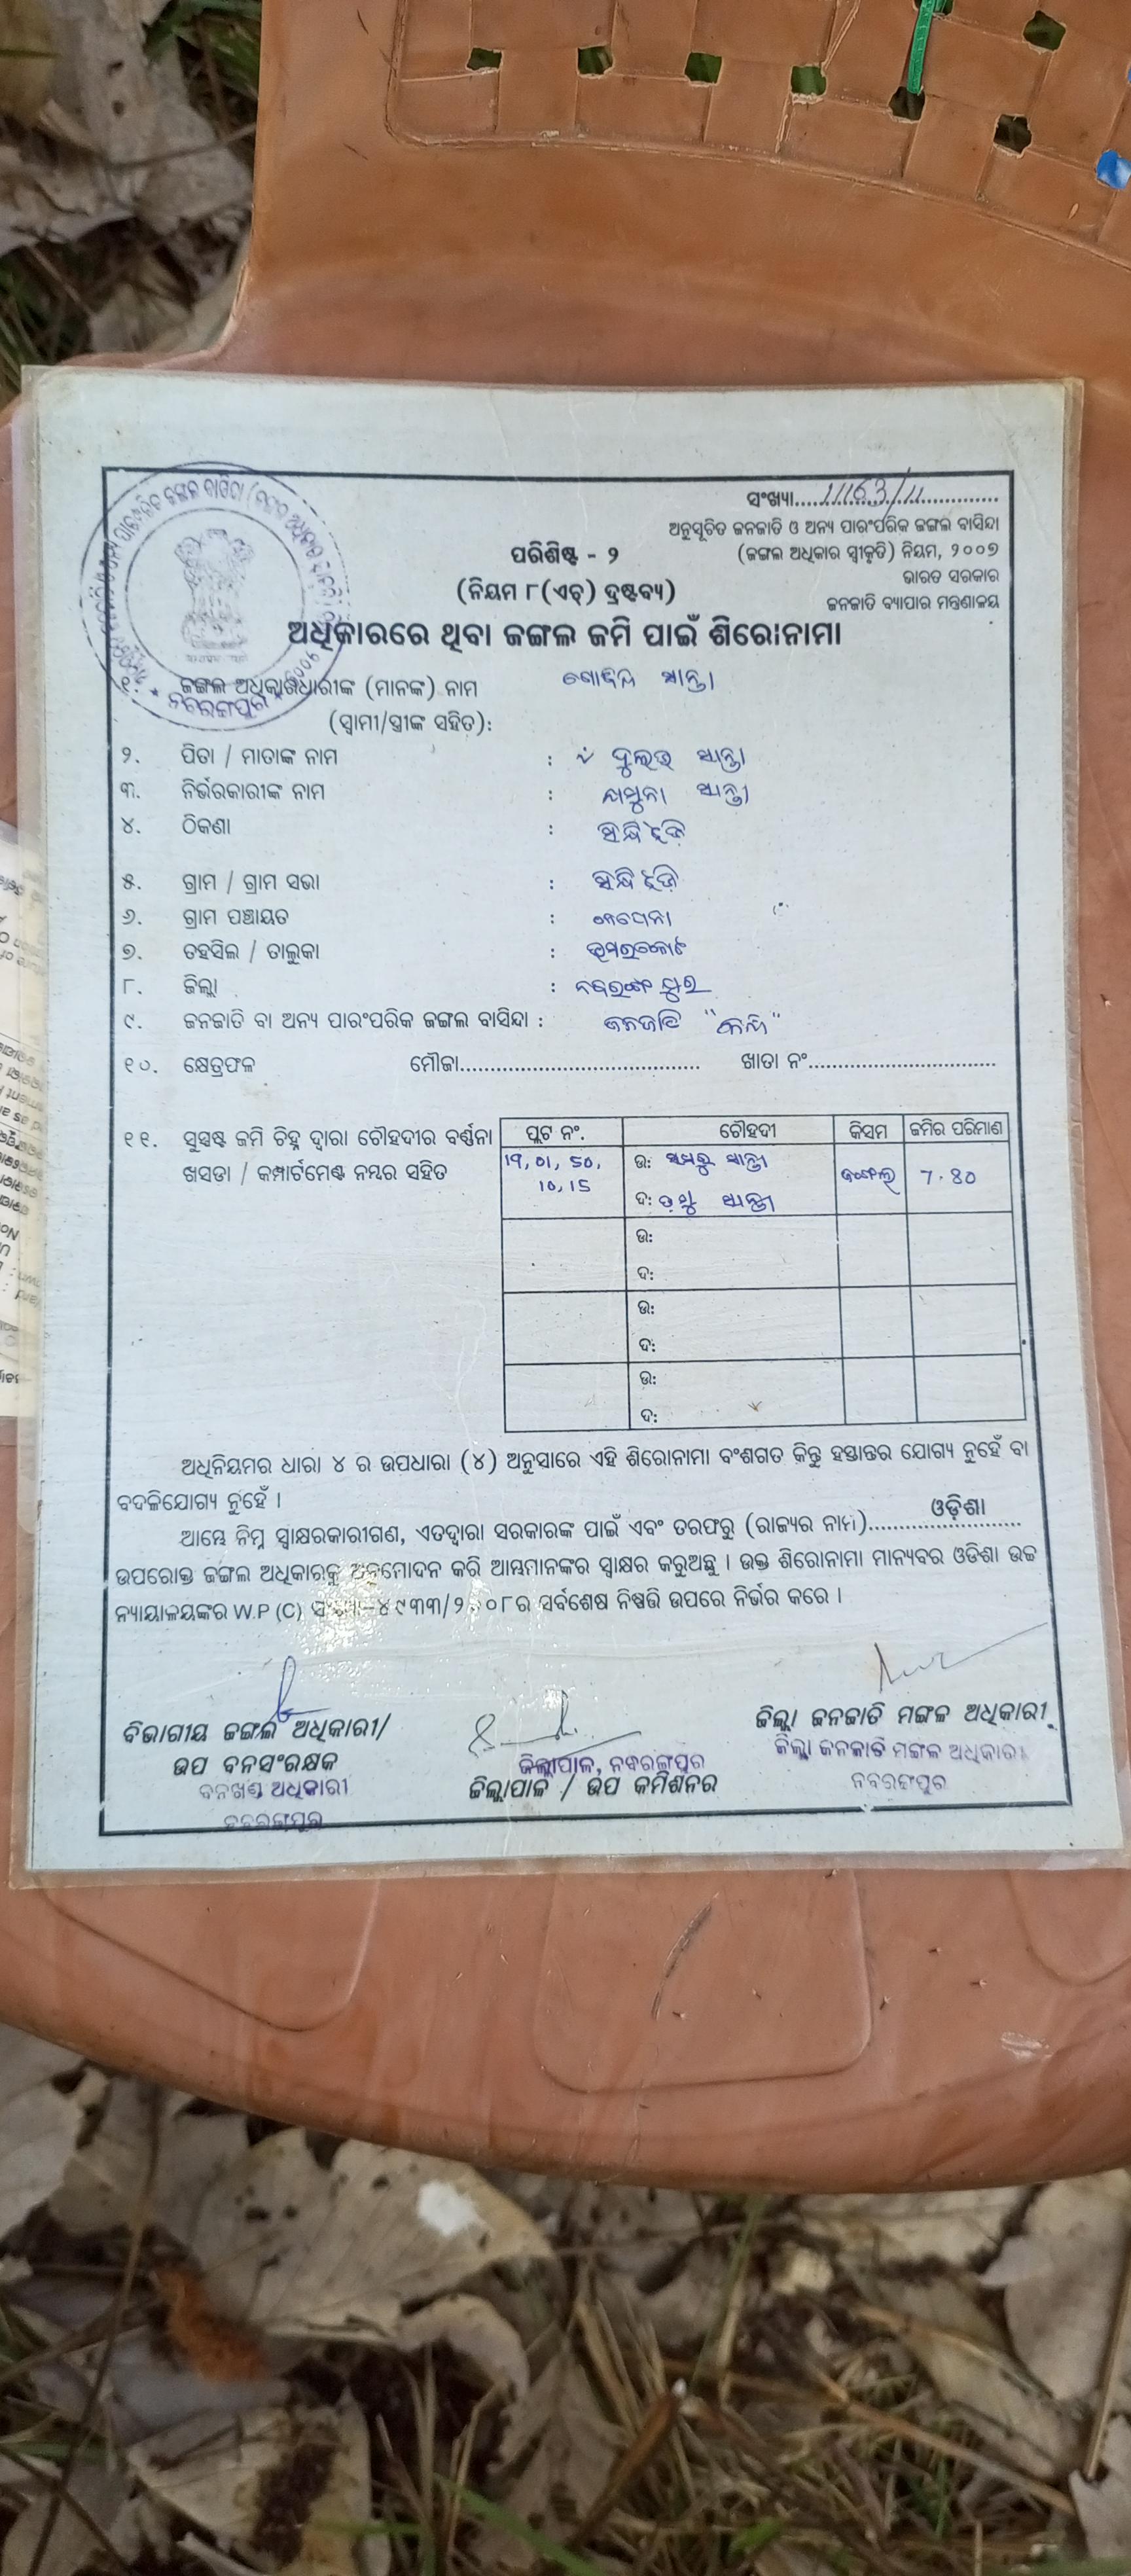 ସଂଖ୍ୟା....11163/11....
ଅନୁସୂଚିତ ଜନଜାତି ଓ ଅନ୍ୟ ପାରଂପରିକ ଜଙ୍ଗଲ ବାସିନ୍ଦା
(ଜଙ୍ଗଲ ଅଧିକାର ସ୍ୱୀକୃତି) ନିୟମ, ୨୦୦୭
ଭାରତ ସରକାର
ଜନଜାତି ବ୍ୟାପାର ମନ୍ତ୍ରଣାଳୟ
ପରିଶିଷ୍ଟ - ୨
(ନିୟମ ୮(ଏଚ୍) ଦ୍ରଷ୍ଟବ୍ୟ)
ଅଧିକାରରେ ଥିବା ଜଙ୍ଗଲ ଜମି ପାଇଁ ଶିରୋନାମା
୧. ଜଙ୍ଗଲ ଅଧିକାରଧାରୀଙ୍କ (ମାନଙ୍କ) ନାମ ସାନ୍ତା
(ସ୍ୱାମୀ/ସ୍ତ୍ରୀଙ୍କ ସହିତ):
୨. ପିତା / ମାତାଙ୍କ ନାମ : ସାନ୍ତା
୩. ନିର୍ଭରକାରୀଙ୍କ ନାମ : ଯମୁନା ସାନ୍ତା
୪. ଠିକଣା :
୫. ଗ୍ରାମ / ଗ୍ରାମ ସଭା :
୬. ଗ୍ରାମ ପଞ୍ଚାୟତ :
୭. ତହସିଲ / ତାଲୁକା : ଉମରକୋଟ
୮. ଜିଲ୍ଲା : ନବରଙ୍ଗପୁର
୯. ଜନଜାତି ବା ଅନ୍ୟ ପାରଂପରିକ ଜଙ୍ଗଲ ବାସିନ୍ଦା : ଜନଜାତି
୧୦. କ୍ଷେତ୍ରଫଳ ମୌଜା........................................ ଖାତା ନଂ................................
୧୧. ସୁସ୍ପଷ୍ଟ ଜମି ଚିହ୍ନ ଦ୍ୱାରା ଚୌହଦୀର ବର୍ଣ୍ଣନା
ଖସଡା / କମ୍ପାର୍ଟମେଣ୍ଟ ନମ୍ବର ସହିତ
ପ୍ଲଟ ନଂ. ଚୌହଦୀ କିସମ ଜମିର ପରିମାଣ
19, 01, 50, ଉ: ସାନ୍ତା ଜଙ୍ଗଲ 7.80
10, 15 ଦ: ସାନ୍ତା
ଉ:
ଦ:
ଉ:
ଦ:
ଉ:
ଦ:
ଅଧିନିୟମର ଧାରା ୪ ର ଉପଧାରା (୪) ଅନୁସାରେ ଏହି ଶିରୋନାମା ବଂଶଗତ କିନ୍ତୁ ହସ୍ତାନ୍ତର ଯୋଗ୍ୟ ନୁହେଁ ବା
ବଦଳିଯୋଗ୍ୟ ନୁହେଁ ।
ଆମ୍ଭେ ନିମ୍ନ ସ୍ୱାକ୍ଷରକାରୀଗଣ, ଏତଦ୍ୱାରା ସରକାରଙ୍କ ପାଇଁ ଏବଂ ତରଫରୁ (ରାଜ୍ୟର ନାମ)........ଓଡ଼ିଶା........
ଉପରୋକ୍ତ ଜଙ୍ଗଲ ଅଧିକାରକୁ ଅନୁମୋଦନ କରି ଆମ୍ଭମାନଙ୍କର ସ୍ୱାକ୍ଷର କରୁଅଛୁ । ଉକ୍ତ ଶିରୋନାମା ମାନ୍ୟବର ଓଡିଶା ଉଚ୍ଚ
ନ୍ୟାୟାଳୟଙ୍କର W.P (C) ସଂଖ୍ୟା-୪୯୩୩/୨୦୦୮ର ସର୍ବଶେଷ ନିଷ୍ପତ୍ତି ଉପରେ ନିର୍ଭର କରେ ।
ବିଭାଗୀୟ ଜଙ୍ଗଲ ଅଧିକାରୀ/
ଉପ ବନସଂରକ୍ଷକ
ବନଖଣ୍ଡ ଅଧିକାରୀ
ନବରଙ୍ଗପୁର
ଜିଲ୍ଲାପାଳ, ନବରଙ୍ଗପୁର
ଜିଲ୍ଲାପାଳ / ଉପ କମିଶନର
ଜିଲ୍ଲା ଜନଜାତି ମଙ୍ଗଳ ଅଧିକାରୀ
ଜିଲ୍ଲା ଜନଜାତି ମଙ୍ଗଳ ଅଧିକାରୀ
ନବରଙ୍ଗପୁର